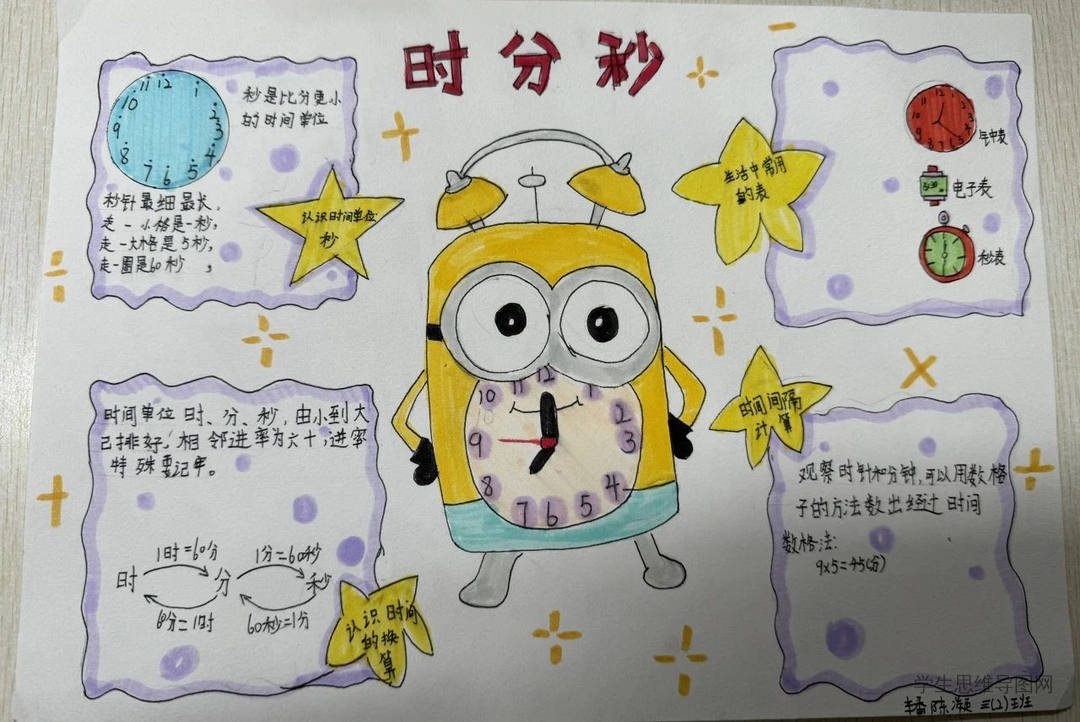 时分秒
12
1
2
3
4
5
6
7
8
9
10
11
秒是比分更小
的时间单位
秒针最细最长,
走一小格是一秒,
走一大格是5秒,
走一圈是60秒,
认识时间单位:
秒
生活中常用
的表
12
钟表
电子表
秒表
12
1
2
3
4
5
6
7
8
9
10
11
时间单位时、分、秒,由小到大
已排好,相邻进率为六十,进率
特殊要记牢。
1时=60分
1分=60秒
时
分
秒
60分=1时
60秒=1分
认识时间
的换
算
时间间隔
计算
观察时针和分钟,可以用数格
子的方法数出经过时间
数格法:
9x5=45(分)
学生思维导图网
三(2)班